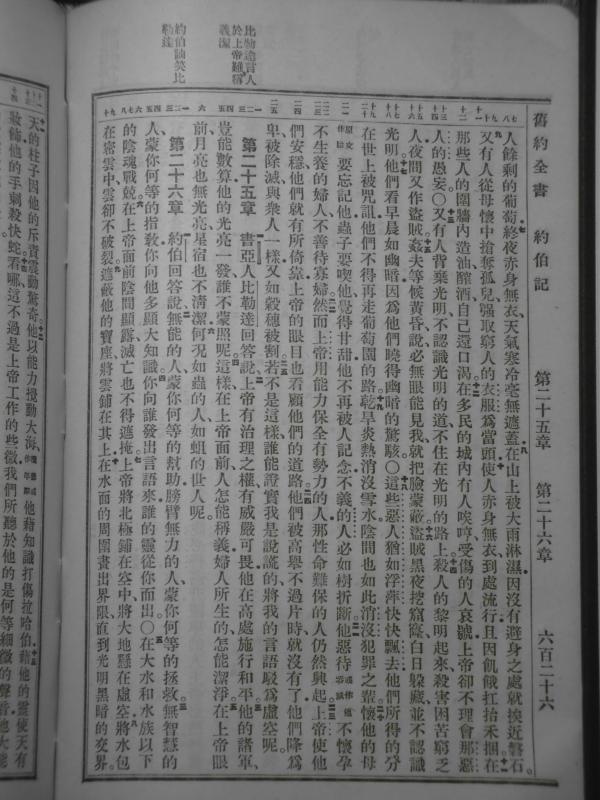 舊約全書　約伯記　第二十五章　第二十六章　六百二十六
人餘剩的葡萄終夜赤身無衣天氣寒冷毫無遮蓋在山上被大雨淋濕因沒有避身之處就挨近磐石
又有人從母懷中搶奪孤兒强取窮人的衣服爲當頭使人赤身無衣到處流行且因飢餓扛抬禾捆在
那些人的圍牆內造油醡酒自己還口渴在多民的城內有人唉哼受傷的人哀號上帝卻不理會那惡
人的愚妄〇又有人背棄光明不認識光明的道不住在光明的路上殺人的黎明起來殺害困苦窮乏
人夜間又作盜賊姦夫等候黃昏說必無眼能見我就把臉蒙蔽盜賊黑夜挖窟窿白日躲藏並不認識
光明他們看早晨如幽暗因爲他們曉得幽暗的驚駭〇這些惡人猶如浮萍快快飄去他們所得的分
在世上被咒詛他們不得再走葡萄園的路乾旱炎熱消沒雪水陰間也如此消沒犯罪之輩懷他的母
要忘記他蟲子要喫他覺得甘甜他不再被人記念不義的人必如樹折斷他惡待　不懷孕
不生養的婦人不善待寡婦然而上帝用能力保全有勢力的人那性命難保的人仍然興起上帝使他
們安穩他們就有所倚靠上帝的眼目也看顧他們的道路他們被高舉不過片時就沒有了他們降爲
卑被除滅與衆人一樣又如穀穗被割若不是這樣誰能證實我是說謊的將我的言語駁爲虛空呢
第二十五章　書亞人比勒達回答說上帝有治理之權有威嚴可畏他在高處施行和平他的諸軍
豈能數算他的光亮一發誰不蒙照呢這樣在上帝面前人怎能稱義婦人所生的怎能潔淨在上帝眼
前月亮也無光亮星宿也不清潔何況如蟲的人如蛆的世人呢
第二十六章　約伯回答說無能的人蒙你何等的幫助膀臂無力的人蒙你何等的拯救無智慧的
人蒙你何等的指敎你向他多顯大知識你向誰發出言語來誰的靈從你而出〇在大水和水族以下
的陰魂戰兢在上帝面前陰間顯露滅亡也不得遮掩上帝將北極鋪在空中將大地懸在虛空將水包
在密雲中雲卻不破裂遮蔽他的寶座將雲鋪在其上在水面的周圍畫出界限直到光明黑暗的交界
比勒達言人於上帝難稱義潔
約伯誚笑比勒達
天的柱子因他的斥責震動驚奇他以能力攪動大海他藉知識打傷拉哈伯藉他的靈使天有
妝飾他的手刺殺快蛇看哪這不過是上帝工作的些微我們所聽於他的是何等細微的聲音他大能